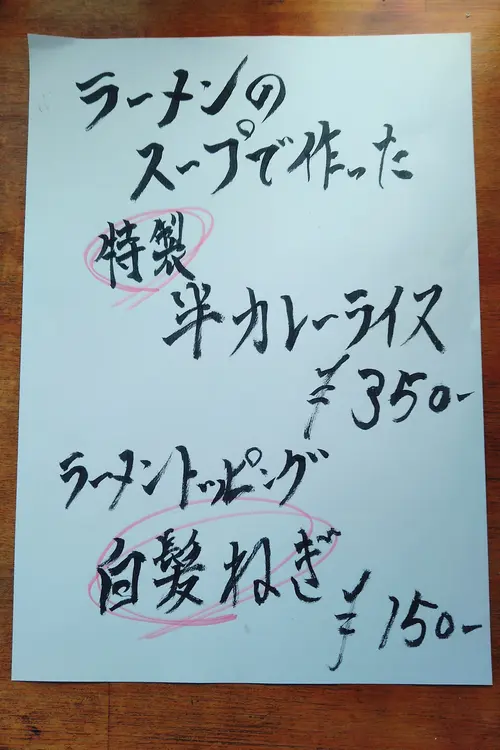 ラーメンの
スープで作った
特製
半カレーライス
¥350-
ラーメントッピング
白髪ねぎ
¥150-